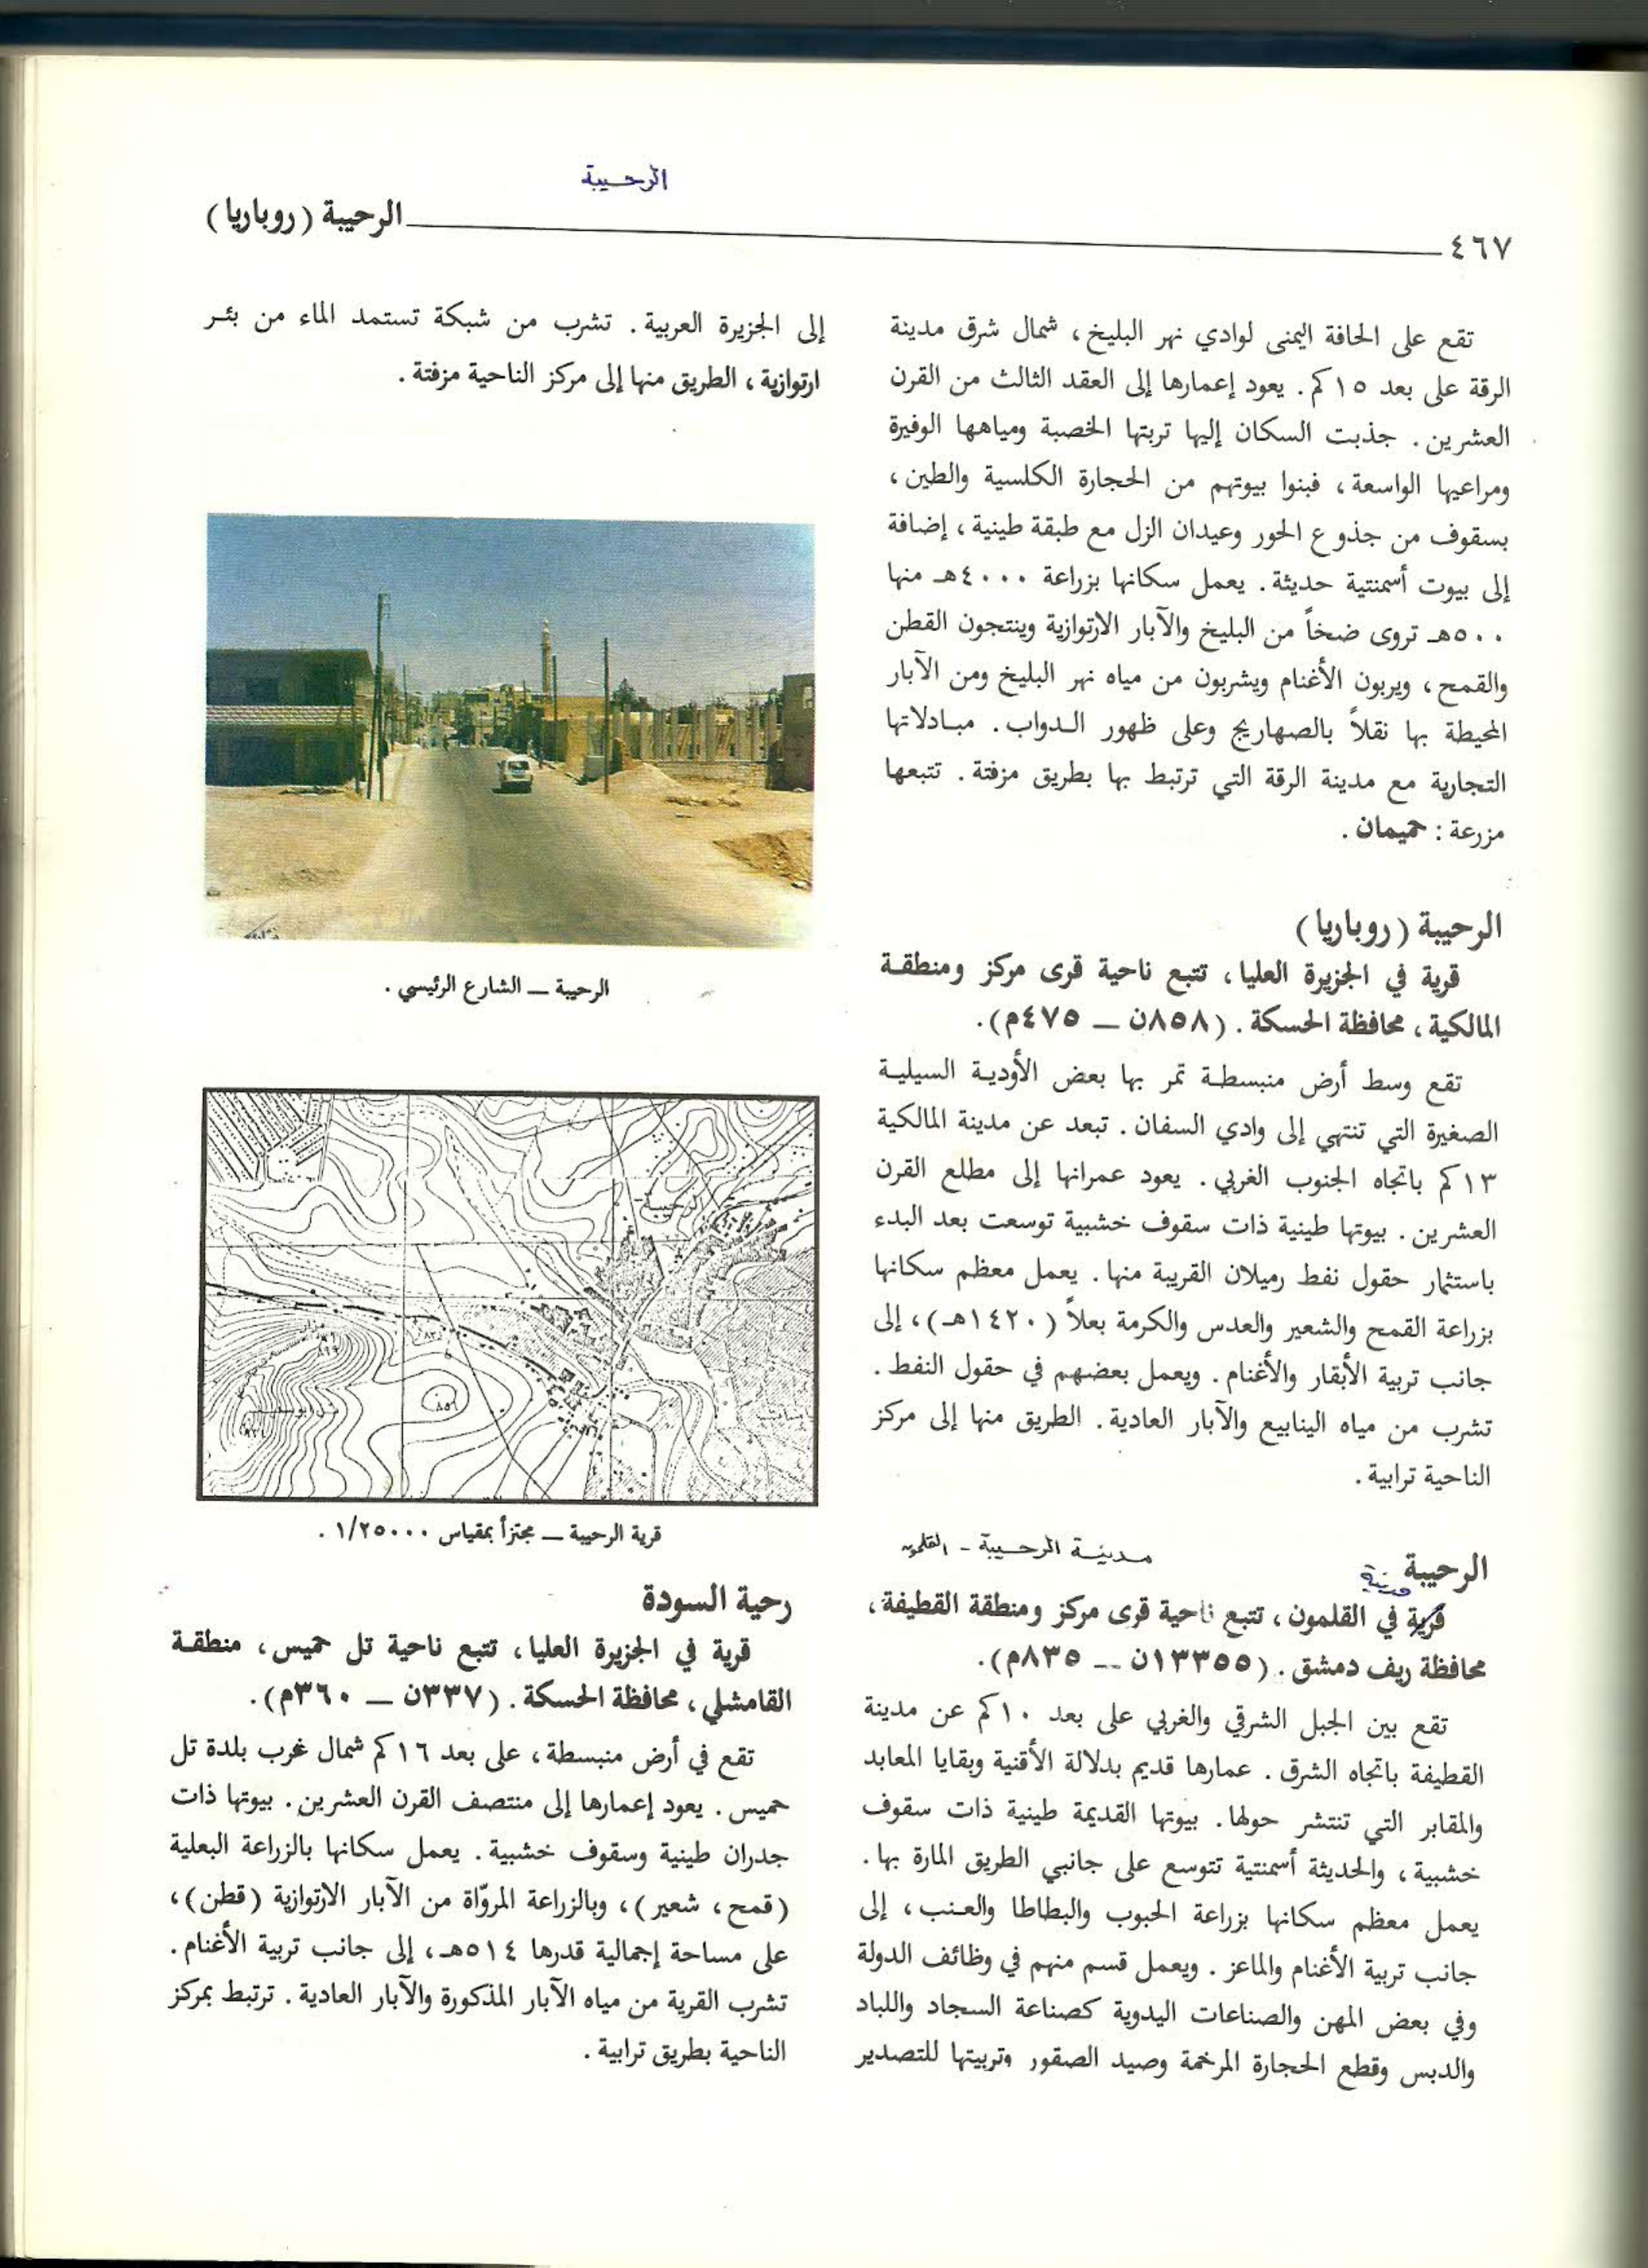 الرحيبة
الرحيبة (روباريا)
٤٦٧
تقع على الحافة اليمنى لوادي نهر البليخ، شمال شرق مدينة
الرقة على بعد ١٥كم. يعود إعمارها إلى العقد الثالث من القرن
العشرين. جذبت السكان إليها تربتها الخصبة ومياهها الوفيرة
ومراعيها الواسعة، فبنوا بيوتهم من الحجارة الكلسية والطين،
بسقوف من جذوع الحور وعيدان الزل مع طبقة طينية، إضافة
إلى بيوت أسمنتية حديثة. يعمل سكانها بزراعة ٤٠٠٠هـ منها
٥٠٠هـ تروى ضخاً من البليخ والآبار الارتوازية وينتجون القطن
والقمح، ويربون الأغنام ويشربون من مياه نهر البليخ ومن الآبار
المحيطة بها نقلاً بالصهاريج وعلى ظهور الدواب. مبادلاتها
التجارية مع مدينة الرقة التي ترتبط بها بطريق مزفتة. تتبعها
مزرعة: حميمان.
الرحيبة (روباريا)
قرية في الجزيرة العليا، تتبع ناحية قرى مركز ومنطقة
المالكية، محافظة الحسكة. (٨٥٨ن ــ ٤٧٥م).
تقع وسط أرض منبسطة تمر بها بعض الأودية السيلية
الصغيرة التي تنتهي إلى وادي السفان. تبعد عن مدينة المالكية
١٣كم باتجاه الجنوب الغربي. يعود عمرانها إلى مطلع القرن
العشرين. بيوتها طينية ذات سقوف خشبية توسعت بعد البدء
باستثمار حقول نفط رميلان القريبة منها. يعمل معظم سكانها
بزراعة القمح والشعير والعدس والكرمة بعلاً (١٤٢٠هـ)، إلى
جانب تربية الأبقار والأغنام. ويعمل بعضهم في حقول النفط.
تشرب من مياه الينابيع والآبار العادية. الطريق منها إلى مركز
الناحية ترابية.
مدينة الرحيبة - القلمون
الرحيبة
مدينة
قرية في القلمون، تتبع ناحية قرى مركز ومنطقة القطيفة،
محافظة ريف دمشق. (١٣٣٥٥ن ــ ٨٣٥م).
تقع بين الجبل الشرقي والغربي على بعد ١٠كم عن مدينة
القطيفة باتجاه الشرق. عمارها قديم بدلالة الأقنية وبقايا المعابد
والمقابر التي تنتشر حولها. بيوتها القديمة طينية ذات سقوف
خشبية، والحديثة أسمنتية تتوسع على جانبي الطريق المارة بها.
يعمل معظم سكانها بزراعة الحبوب والبطاطا والعنب، إلى
جانب تربية الأغنام والماعز. ويعمل قسم منهم في وظائف الدولة
وفي بعض المهن والصناعات اليدوية كصناعة السجاد واللباد
والدبس وقطع الحجارة المرخمة وصيد الصقور وتربيتها للتصدير
إلى الجزيرة العربية. تشرب من شبكة تستمد الماء من بئر
ارتوازية، الطريق منها إلى مركز الناحية مزفتة.
الرحيبة ــ الشارع الرئيسي.
الرحيبة
٨٥٦
قرية الرحيبة ــ مجتزأ بمقياس ١/٢٥٠٠٠.
رحية السودة
قرية في الجزيرة العليا، تتبع ناحية تل حميس، منطقة
القامشلي، محافظة الحسكة. (٣٣٧ن ــ ٣٦٠م).
تقع في أرض منبسطة، على بعد ١٦كم شمال غرب بلدة تل
حميس. يعود إعمارها إلى منتصف القرن العشرين. بيوتها ذات
جدران طينية وسقوف خشبية. يعمل سكانها بالزراعة البعلية
(قمح، شعير)، وبالزراعة المروّاة من الآبار الارتوازية (قطن)،
على مساحة إجمالية قدرها ٥١٤هـ، إلى جانب تربية الأغنام.
تشرب القرية من مياه الآبار المذكورة والآبار العادية. ترتبط بمركز
الناحية بطريق ترابية.